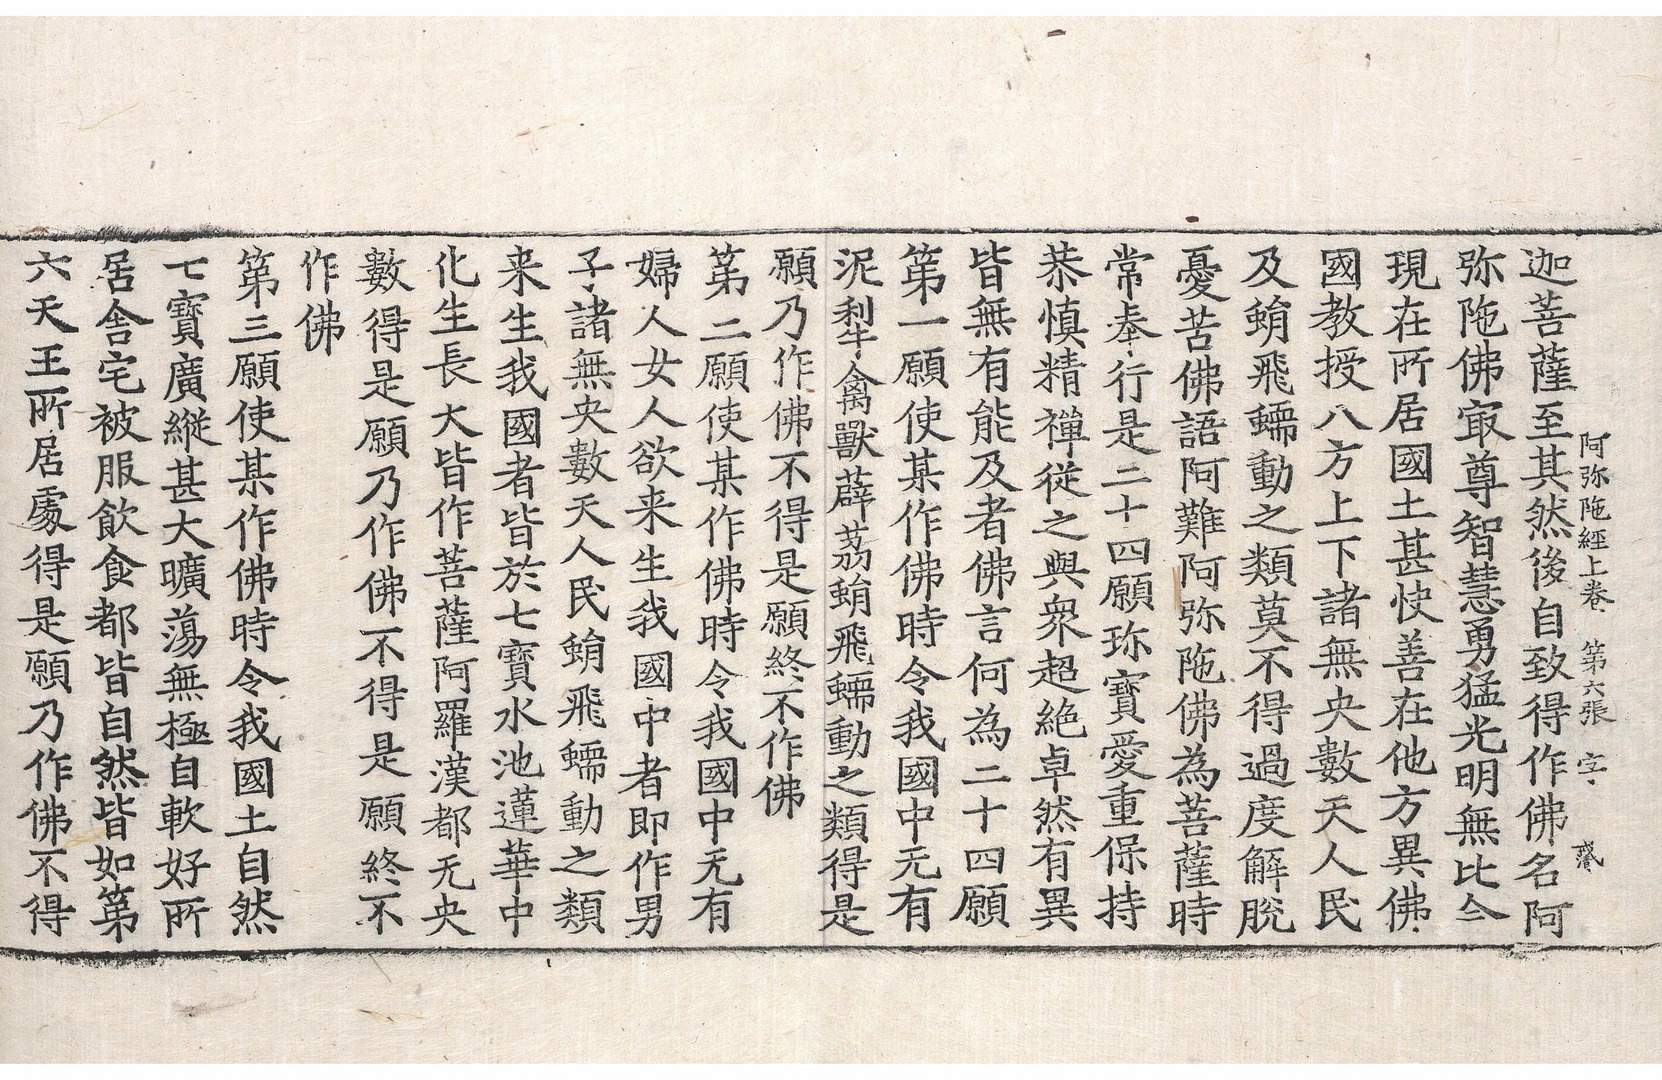 阿弥陁經上卷 第六張 字
迦菩薩至其然後自致得作佛名阿
弥陁佛㝡尊智慧勇猛光明無比今
現在所居國土甚快善在他方異佛
國教授八方上下諸無央數天人民
及蜎飛蠕動之類莫不得過度解脫
憂苦佛語阿難阿弥陁佛為菩薩時
常奉行是二十四願珎寶愛重保持
恭慎精禪從之與衆超絶卓然有異
皆無有能及者佛言何為二十四願
第一願使某作佛時令我國中无有
泥犁禽獸薜荔蜎飛蠕動之類得是
願乃作佛不得是願終不作佛
第二願使某作佛時令我國中无有
婦人女人欲来生我國中者即作男
子諸無央數天人民蜎飛蠕動之類
来生我國者皆於七寶水池蓮華中
化生長大皆作菩薩阿羅漢都无央
數得是願乃作佛不得是願終不
作佛
第三願使某作佛時令我國土自然
七寶廣縱甚大曠蕩無極自軟好所
居舍宅被服飲食都皆自然皆如第
六天王所居處得是願乃作佛不得